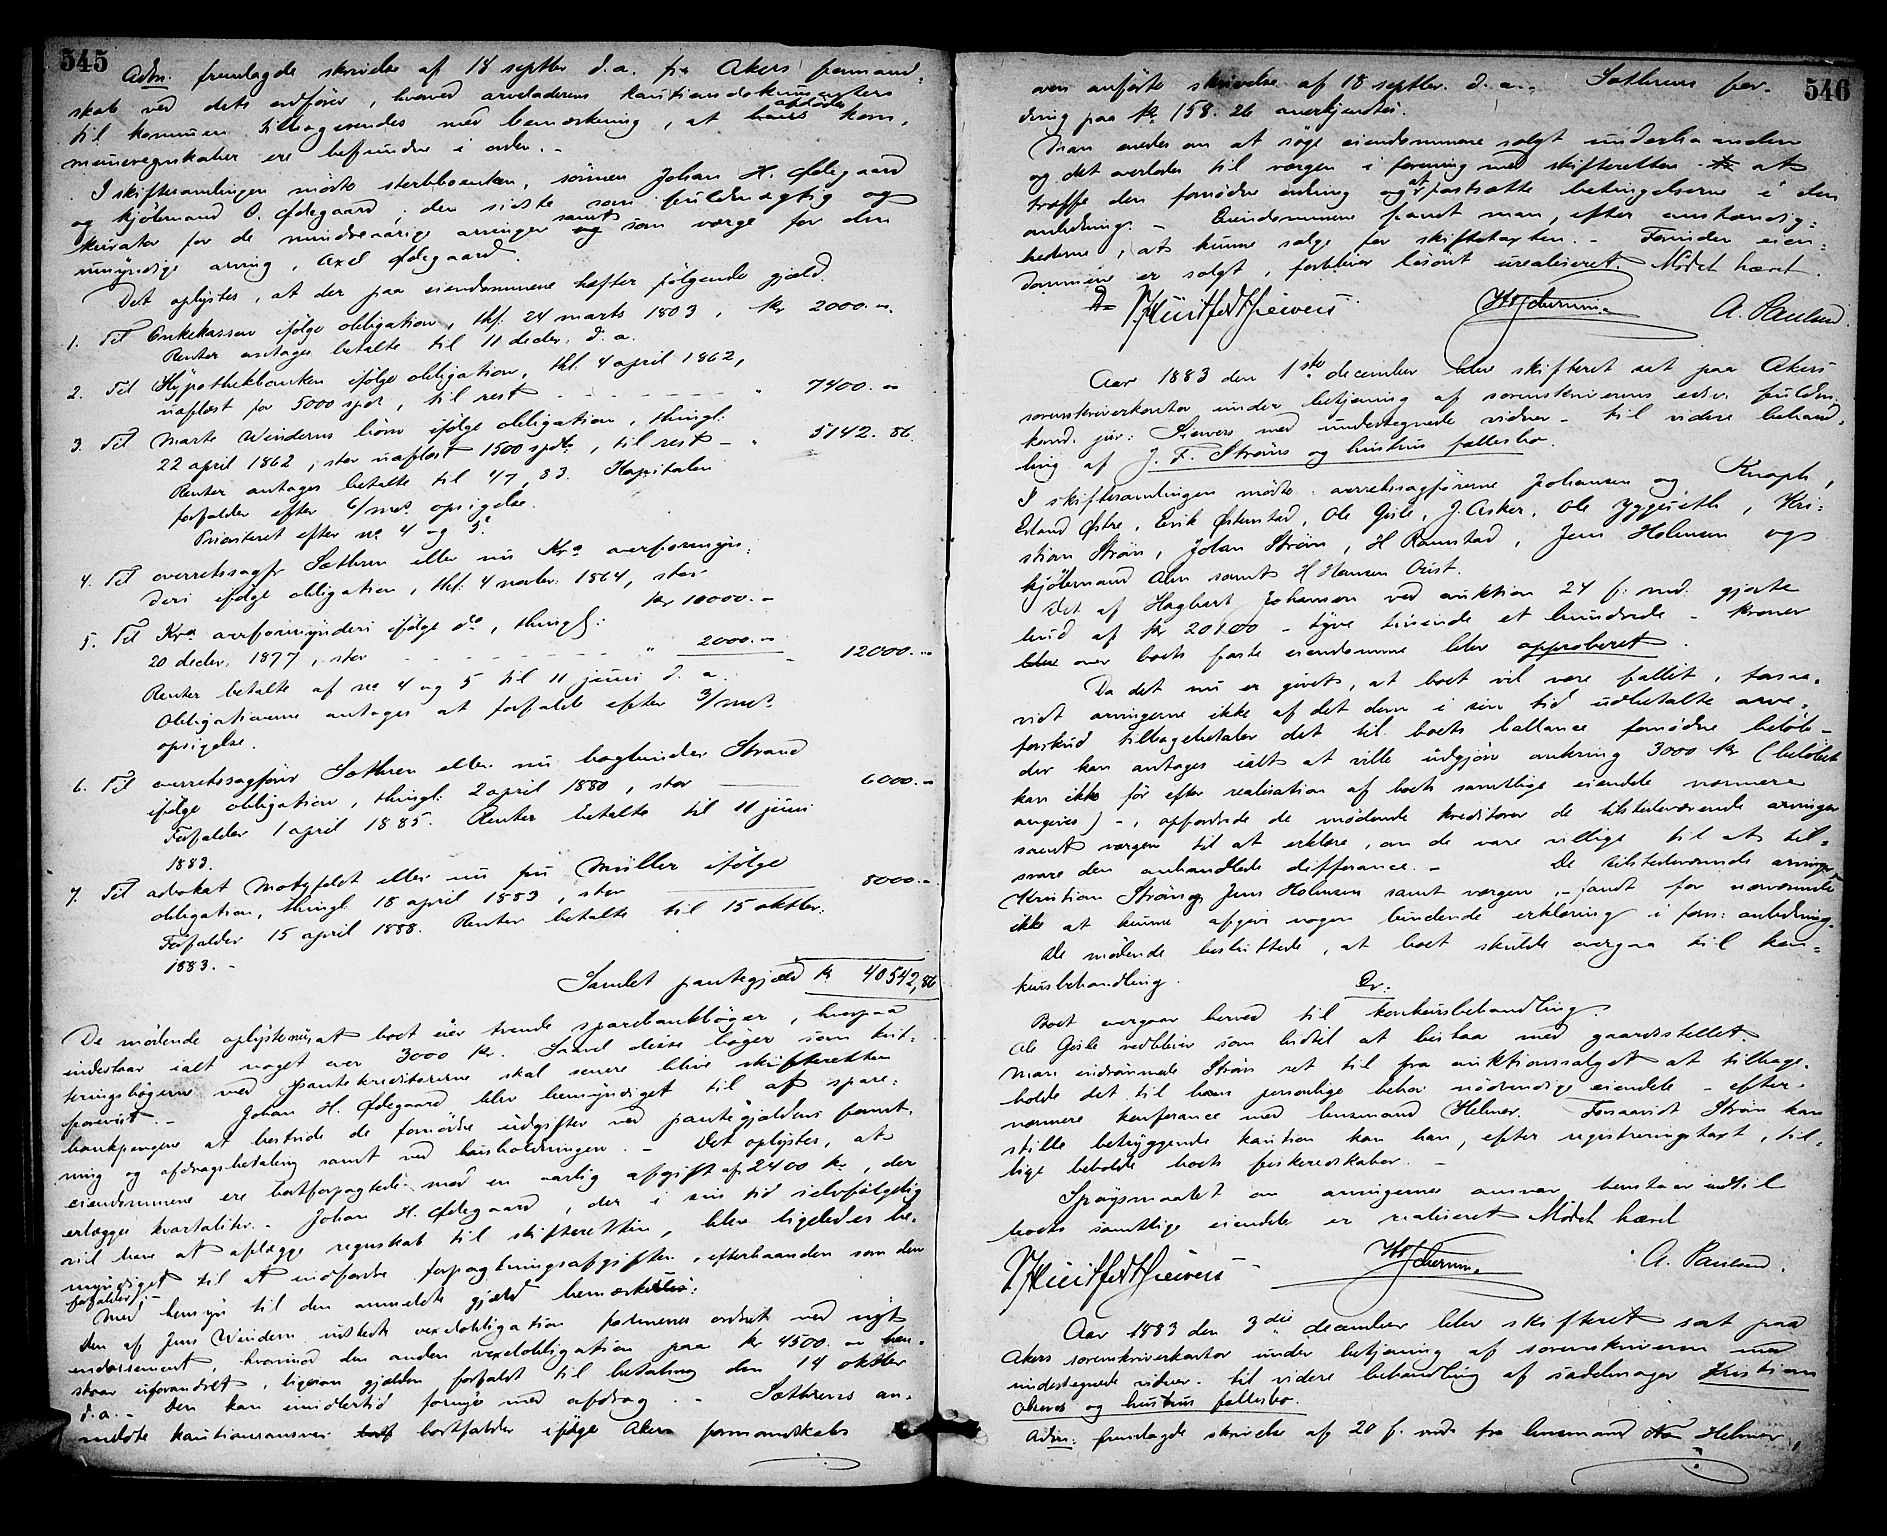 545
Adm. fremlagde skrivelse af 18 septbr d.a. fra Akers formand-
skab ved dets ordfører, hvorved arveladerens kautionsdokumenters
til kommunen tilbagesendes med bemærkning, at hans afdødes kom-
muneregnskaber ere befundne i orden. -
I skiftesamlingen mødte sterbboenken, sønnen Johan H. Ødegaard
og kjøbmand O. Ødegaard, den sidste som fuldmægtig og
kurator for de mindreaarige arvinger og samt som værge for den
umyndige arving, Axel Ødegaard.
Det oplystes, at der paa eiendommene hefter følgende gjæld.
1. Til Enkekassen ifølge obligation, thl. 24 marts 1803, kr 2000.-
Renter antages betalte til 11 decbr. d. a.
2. Til Hypothekbanken ifølge obligation, thl. 4 april 1862,
uafløst for 5000 spd, til rest - - - " 7400.-
3. Til Marte Winderns børn ifølge obligation, thingl.
22 april 1862, stor uafløst 1500 spdr, til rest - " 5142.86.
Renter antages betalte til 4/7 83. Kapitalen
forfalder efter 6/mds. opsigelse.
Prioriteret efter no 4 og 5.
4. Til overretssagf. Sæthren eller nu Kra overformyn-
deri ifølge obligation, thl. 4 novbr. 1864, stor
kr 10000.-
5. Til Kra overformynderi ifølge do, thingl:
20 decbr. 1877, stor - - - " 2000.- - 12000.-
Renter betalte af no 4 og 5 til 11 juni d. a.
Obligationerne antages at forfalde efter 3/mds.
opsigelse.
6. Til overretssagfører Sæthren eller nu bogbinder Strand
ifølge obligation, thingl: 2 april 1880, stor 6000.-
Forfalder 1 april 1885. Renter betalte til 11 juni
1883.
7. Til advokat Motzfeldt eller nu fru Müller ifølge
obligation, thingl. 18 april 1883, stor 8000.-
Forfalder 15 april 1888. Renter betalte til 15 oktbr.
1883. -
Samlet pantegjæld kr 40542,86
De mødende oplyste at boet eier trende sparebankbøger, hvorpaa
indestaar ialt noget over 3000 kr. Saavel disse bøger som kvit-
teringsbøgerne ved pantekreditorerne skal senere blive skifteretten
forevist. - Johan H. Ødegaard blev bemyndiget til af spare-
bankpengene at bestride de fornødne udgifter ved pantegjældens forrent-
ning og afdragsbetaling samt ved husholdningen. - Det oplystes, at
eiendommene ere bortforpagtede med en aarlig afgift af 2400 kr., der
erlægges kvartaliter. - Johan H. Ødegaard, der i sin tid selvfølgelig
vil have at aflægge regnskab til skifteretten, blev ligeledes be-
myndiget til at indfordre forpagtningsafgiften, efterhaanden som den
forfalder. -
Med hensyn til den anmeldte gjæld bemærkedes:
Den af Jens Windern udstedte vexelobligation fornyes ordret med nyt
endossement, hvorimod den anden vexelobligation paa kr 4500.- hen-
staar uforandret, ligesom gjælden forfaldt til betaling den 14 oktbr
d.a. - Den kan imidlertid fornyes med afdrag. - Sæthrens an-
meldte kautionsansvar bortfalder ifølge Akers formandskabs
546
oven anførte skrivelse af 18 septbr. d. a. Sæthrens for-
dring paa kr 158.26 anerkjendtes.
Man enedes om at søge eiendommene solgt underhaanden
og det overlodes til værgen i forening med skifteretten at
træffe den fornødne ordning og at fastsætte betingelserne i den
anledning. - Eiendommene fandt man, efter omstændig-
hederne, at kunne sælge for skiftetaxten. - Forinden eien-
dommene er solgt, forbliver løsøret urealiseret. Mødet hævet.
A. Paulsen.
Aar 1883 den 1ste december blev skifteret sat paa Akers
sorenskriverkontor under betjening af sorenskriverens edsv. fuldm.
kand. jur: Sievers med undertegnede vidner - til videre behand-
ling af J. F. Strøms og hustrus fællesbo.
I skiftesamlingen mødte overretssagførerne Johansen og Knoph,
Erland Østre, Erik Østenstad, Ole Gisle, J. Asker, Ole Yggeseth, Kri-
stian Strøm, Johan Strøm, H Ramstad, Jens Holmsen og
kjøbmand Alm samt H Hansen Qvist.
Det af Hagbart Johansen ved auktion 24 f. md. gjorte
bud af kr 20100 - tyve tusinde et hundrede - kroner
over boets faste eiendomme blev approberet.
Da det nu er givet, at boet vil være fallit, forsaa-
vidt arvingerne ikke af det dem i sin tid udbetalte arve-
forskud tilbagebetaler det til boets ballance fornødne beløb -
der kan antages ialt at ville udgjøre omkring 3000 kr (beløbet
kan ikke før efter realisation af boets samtlige eiendele nærmere
angives) -, opfordrede de mødende kreditorer de tilstedeværende arvinger
samt værgen til at erklære, om de vare villige til at til-
svare den omhandlede differance. - De tilstedeværende arvinger
Kristian Strøm og Jens Holmsen samt værgen, - fandt for nærværende
ikke at kunne afgive nogen bindende erklæring i fors: anledning.
De mødende besluttede, at boet skulde overgaa til kon-
kursbehandling. Dr:
Boet overgaar herved til konkursbehandling.
Ole Gisle vedbliver som hidtil at bistaa med gaardsstellet.
Man indrømmede Strøm ret til fra auktionssalget at tilbage-
holde det til hans personlige behov nødvendige eiendele - efter
nærmere konferance med lensmand Helmer. Forsaavidt Strøm kan
stille betryggende kaution kan han, efter registreringstaxt, til-
lige beholde boets fiskeredskaber. -
Spørgsmaalet om arvingernes ansvar henstaar indtil
boets samtlige eiendele er realiseret. Mødet hævet
A. Paulsen.
Aar 1883 den 3die december blev skifteret sat paa
Akers sorenskriverkontor under betjening af sorenskriveren med
undertegnede vidner - til videre behandling af sadelmager Kristian
Olsens og hustrus fællesbo.
Adm: fremlagde skrivelse af 20 f. mds fra lensmand Helmer,